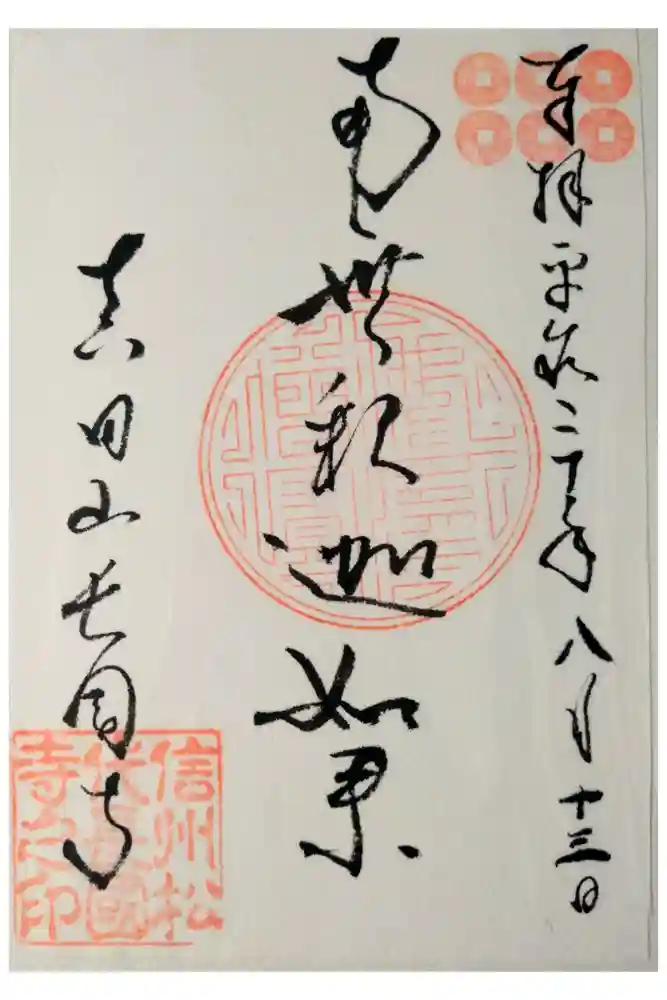 奉拝 平成二十年八月十三日
南無釈迦如来
真田山長国寺
信州松
代長國
寺之印